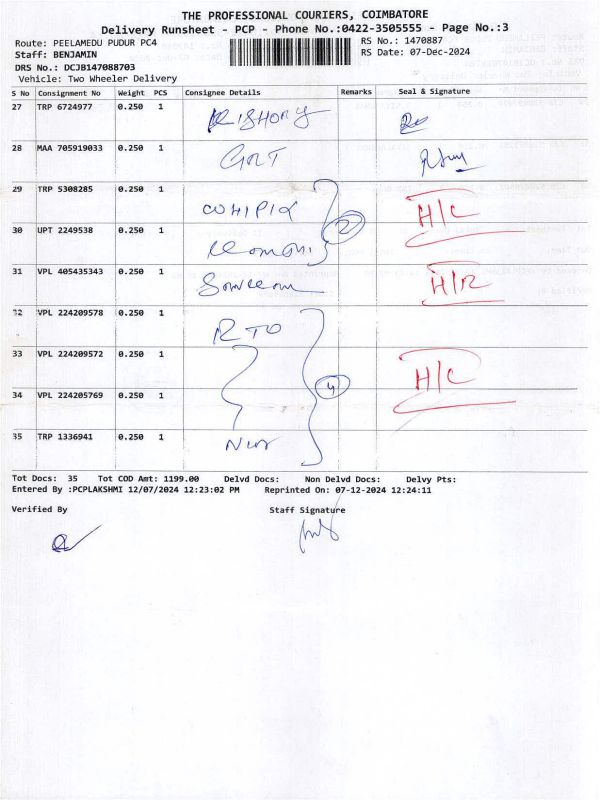 THE PROFESSIONAL COURIERS, COIMBATORE
Delivery Runsheet - PCP - Phone No.:0422-3505555 - Page No.:3
Route: PEELAMEDU PUDUR PC4 RS No.: 1470887
Staff: BENJAMIN RS Date: 07-Dec-2024
DRS No.: DCJB147088703
Vehicle: Two Wheeler Delivery
S No Consignment No Weight PCS Consignee Details Remarks Seal & Signature
27 TRP 6724977 0.250 1
KISHORY
28 MAA 705919033 0.250 1
GRT
29 TRP 5308285 0.250 1
2 H/C
30 UPT 2249538 0.250 1
31 VPL 405435343 0.250 1
H/R
32 VPL 224209578 0.250 1
RTO
33 VPL 224209572 0.250 1
4 H/C
34 VPL 224205769 0.250 1
35 TRP 1336941 0.250 1
Tot Docs: 35 Tot COD Amt: 1199.00 Delvd Docs: Non Delvd Docs: Delvy Pts:
Entered By :PCPLAKSHMI 12/07/2024 12:23:02 PM Reprinted On: 07-12-2024 12:24:11
Verified By Staff Signature